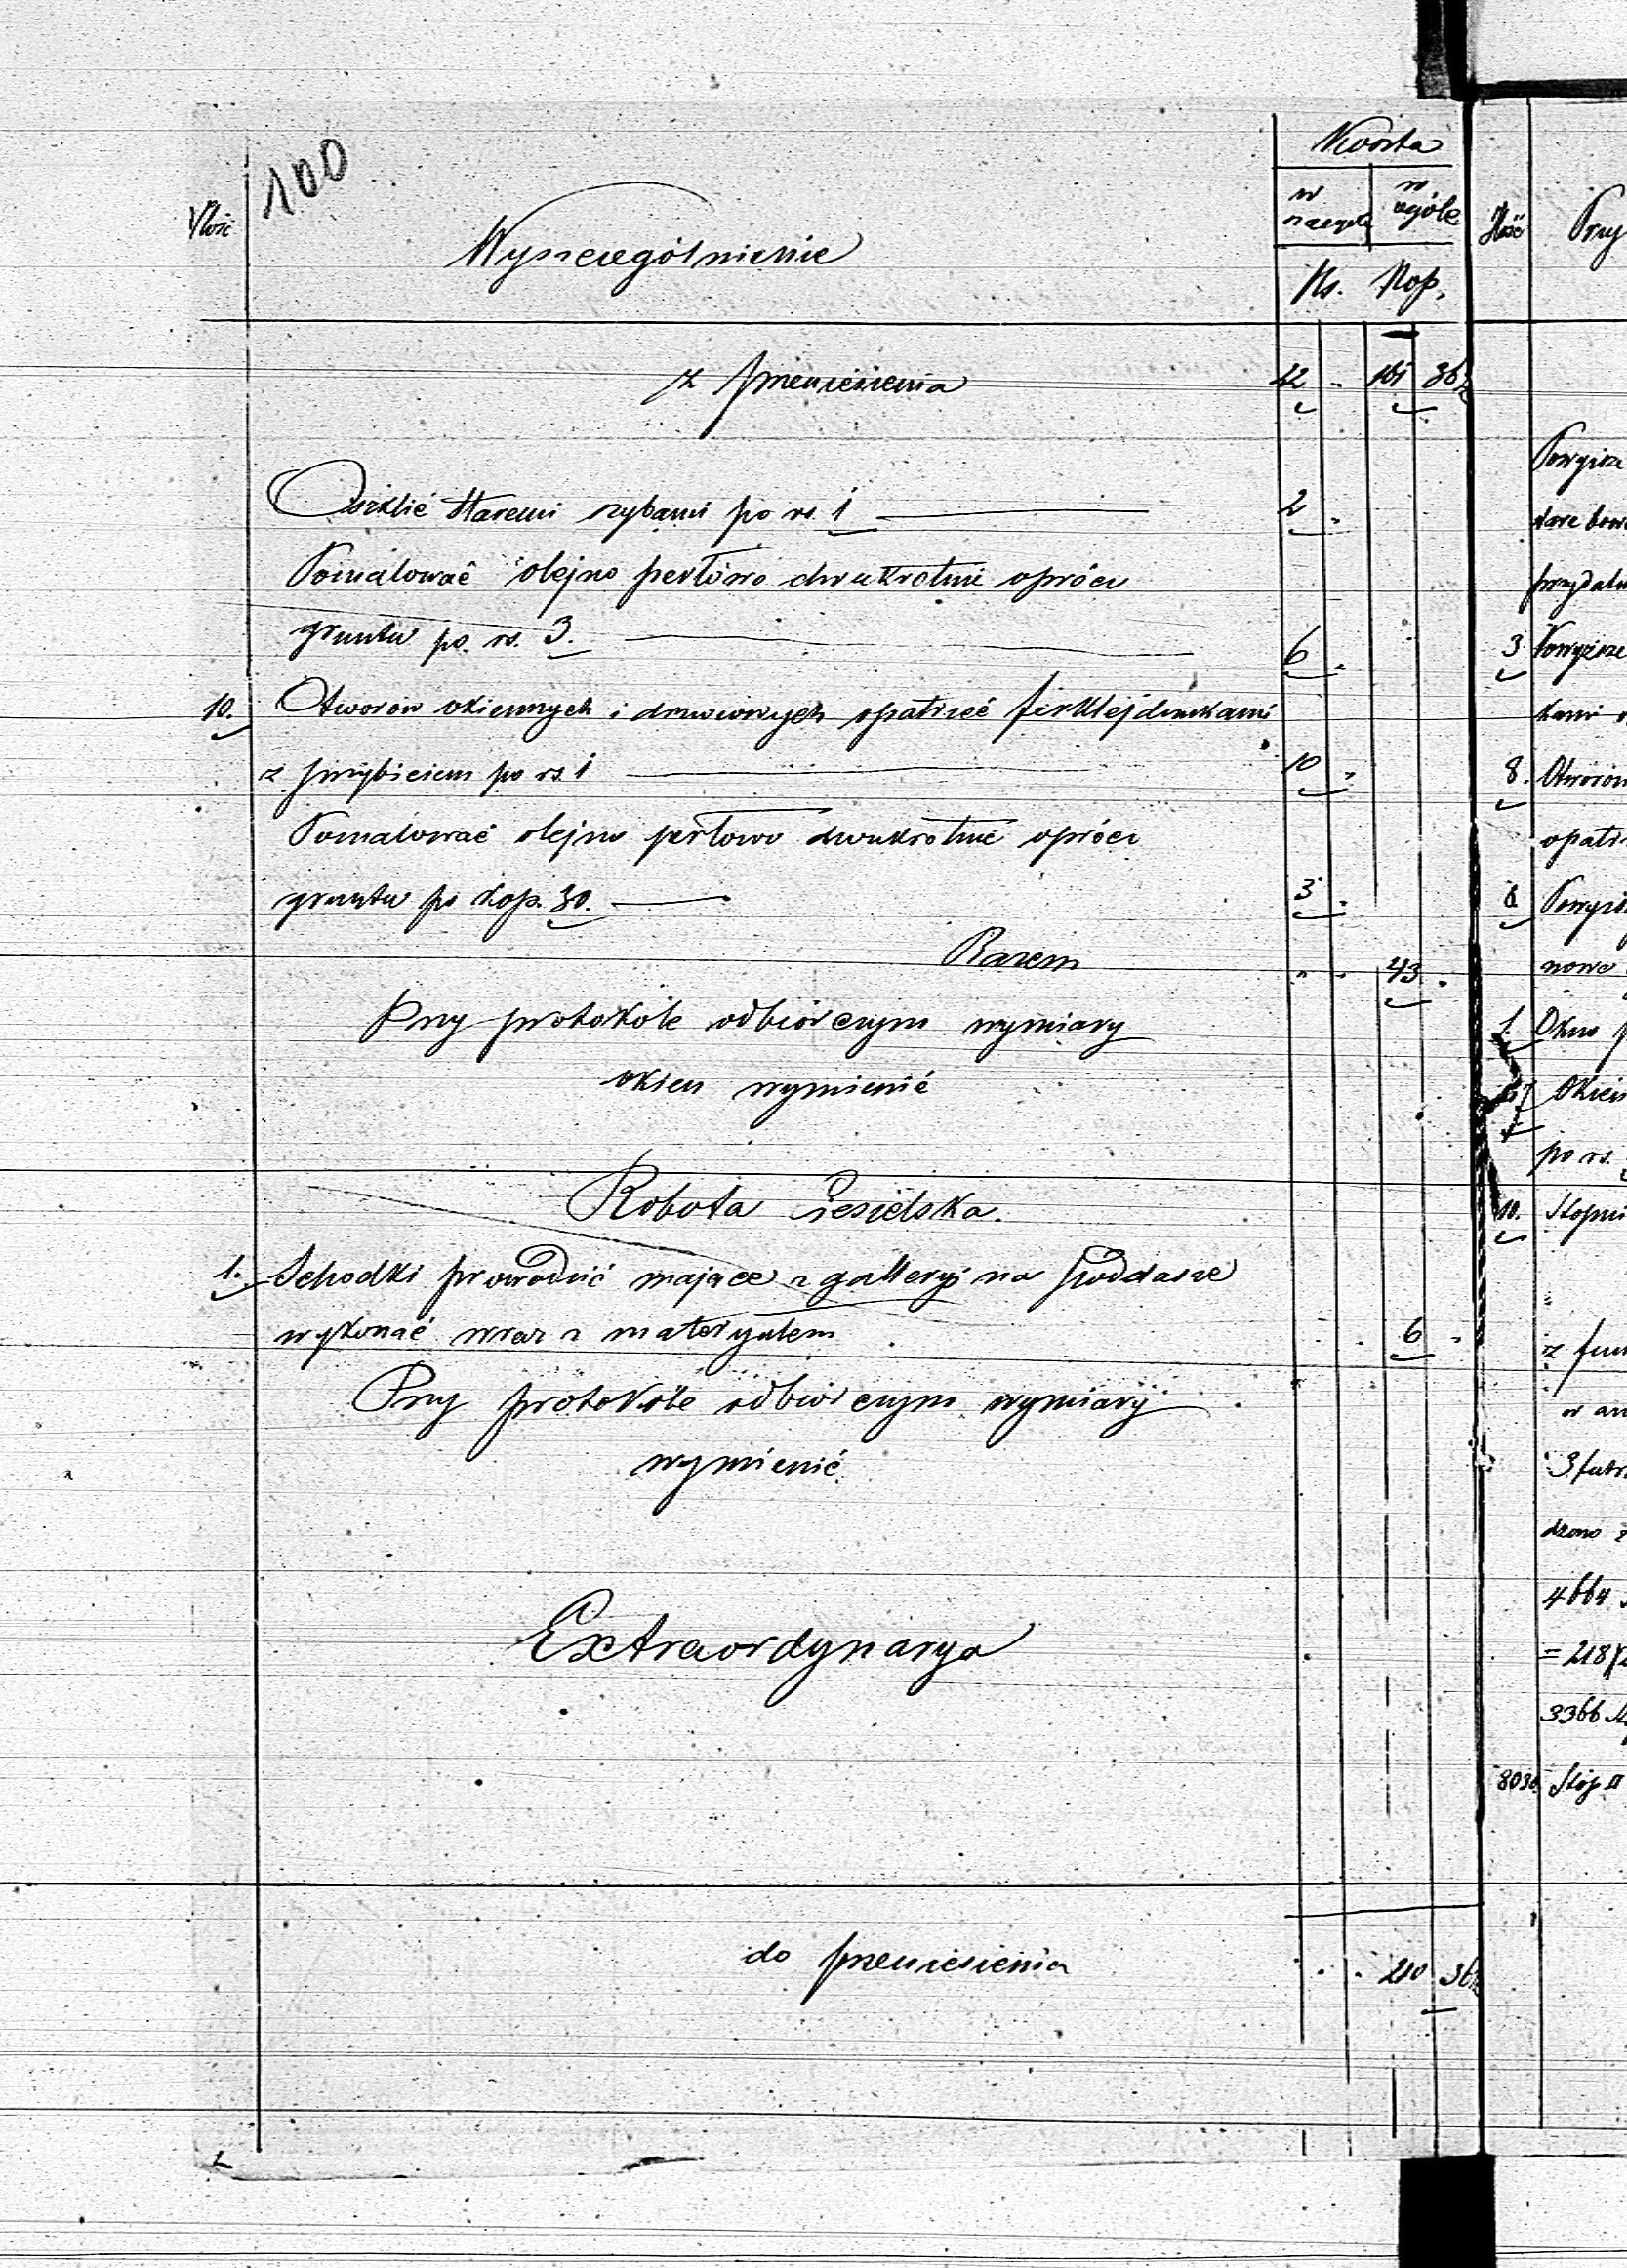 100
Kwota
Ilość
Wyszczególnienie
w szczegole
w ogóle
Rs. Kop.
z przeniesienia 22 " 161 36½
Oszklić staremi szybami po rs. 1 2 "
Pomalować olejno perłowo dwukrotnie oprócz
gruntu po rs. 3. 6 "
10. Otworów okiennych i drzwiowych opatrzeć ferklejdunkami
z przybiciem po rs. 1 10 "
Pomalować olejno perłowo dwukrotnie oprócz
gruntu po kop. 30. 3 "
Razem " " 43 "
Przy protokóle odbiorczym wymiary
okien wymienić
Robota Ciesielska.
1. Schodki prowadzić mające z galleryi na poddasze
wykonać wraz z materyałem 6 "
Przy protokóle odbiorczym wymiary
wymienić
Extraordynarya
do przeniesienia " " 210 36½
Ilość
Powyższe
przydatn
3 Powyższe
8. Otworów
opatrz
8 Powyższ
nowe
1. Okno
Okien
po rs.
10. Stopni
z fun
3 futr
4664
= 218
3366
8030 Stóp □